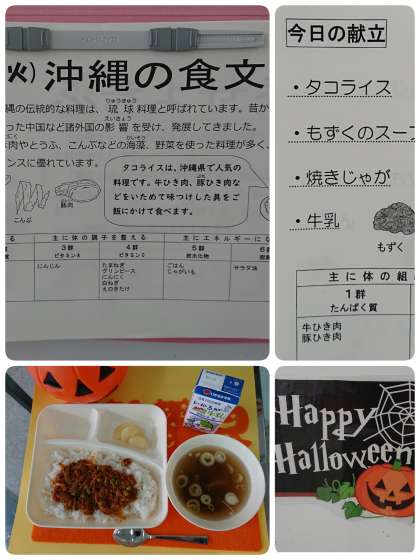 火) 沖縄の食文
縄の伝統的な料理は、琉球料理と呼ばれています。昔か
った中国など諸外国の影響を受け、発展してきました。
肉やとうふ、こんぶなどの海藻、野菜を使った料理が多く、
ンスに優れています。
りゅうきゅう
えいきょう
タコライスは、沖縄県で人気の
料理です。牛ひき肉、豚ひき肉な
どをいためて味つけした具をご
飯にかけて食べます。
こんぶ
豚肉
主に体の調子を整える
主にエネルギーにな
3群
ビタミンA
4群
ビタミンC
5群
炭水化物
6
脂
にんじん
たまねぎ
グリンピース
にんにく
白ねぎ
えのきたけ
ごはん
じゃがいも
サラダ油
今日の献立
・タコライス
・もずくのスープ
・焼きじゃが
・牛乳
もずく
主に体の組
1群
たんぱく質
牛ひき肉
豚ひき肉
Happy
Halloween